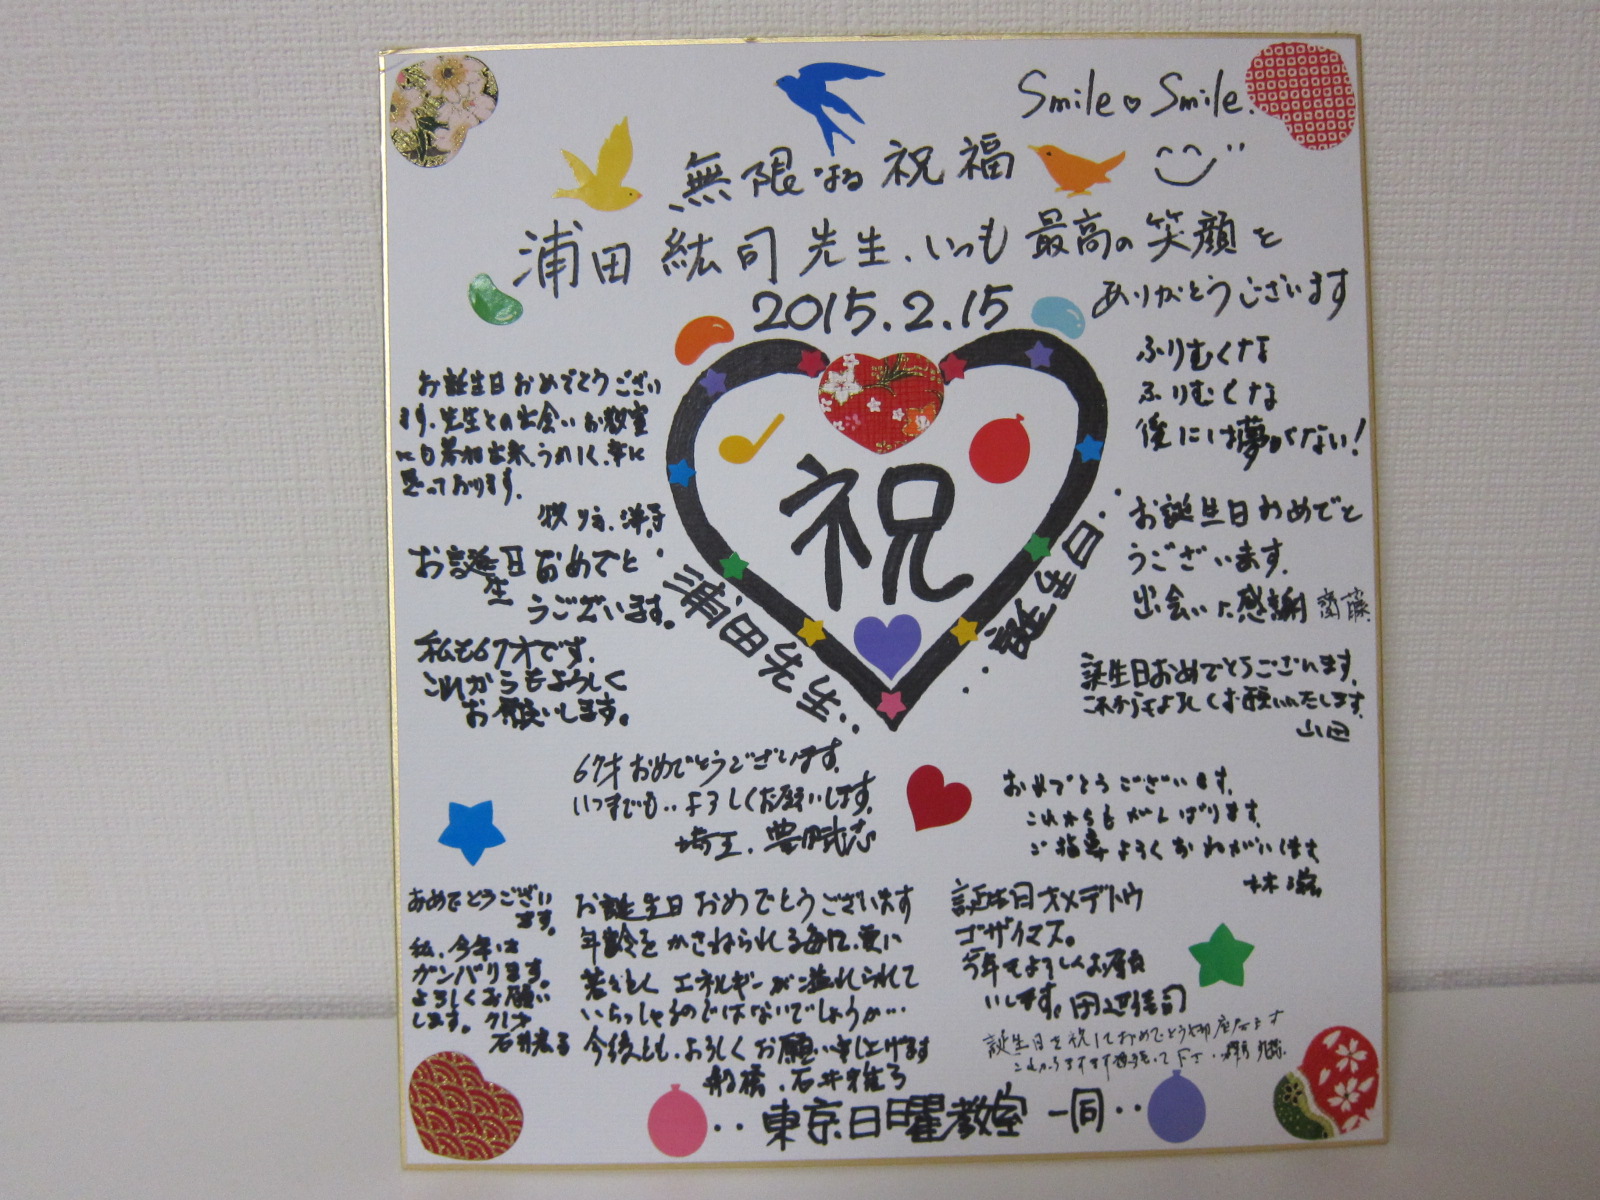 Smile♡Smile.
無限なる祝福
浦田紘司先生、いつも最高の笑顔を
ありがとうございます
2015.2.15
ふりむくな
ふりむくな
後には夢がない!
お誕生日おめでとうござい
ます。先生との出会いお教室
にも参加出来、うれしく、幸に
思っております。
洋子
祝
お誕生日おめでと
うございます。
私も67才です。
これからもよろしく
お願いします。
お誕生日おめでと
うございます。
出会いに感謝 齋藤
浦田先生‥
誕生日おめでとうございます。
これからもよろしくお願いいたします。
山田
67才おめでとうございます。
いつまでも‥よろしくお願いします。
埼玉.
おめでとうございます。
これからもがんばります。
ご指導よろしくおねがいします
林
おめでとうござい
ます。
私、今年は
ガンバります。
よろしくお願い
します。
石井
お誕生日おめでとうございます
年齢をかさねられる毎に、更に
若々しくエネルギーが溢れられて
いらっしゃるのではないでしょうか…
今後とも、よろしくお願い申し上げます
船橋.石井雅子
誕生日オメデトウ
ゴザイマス。
今年もよろしくお願
いします。田辺
誕生日を祝しておめでとう
‥東京日曜教室一同‥